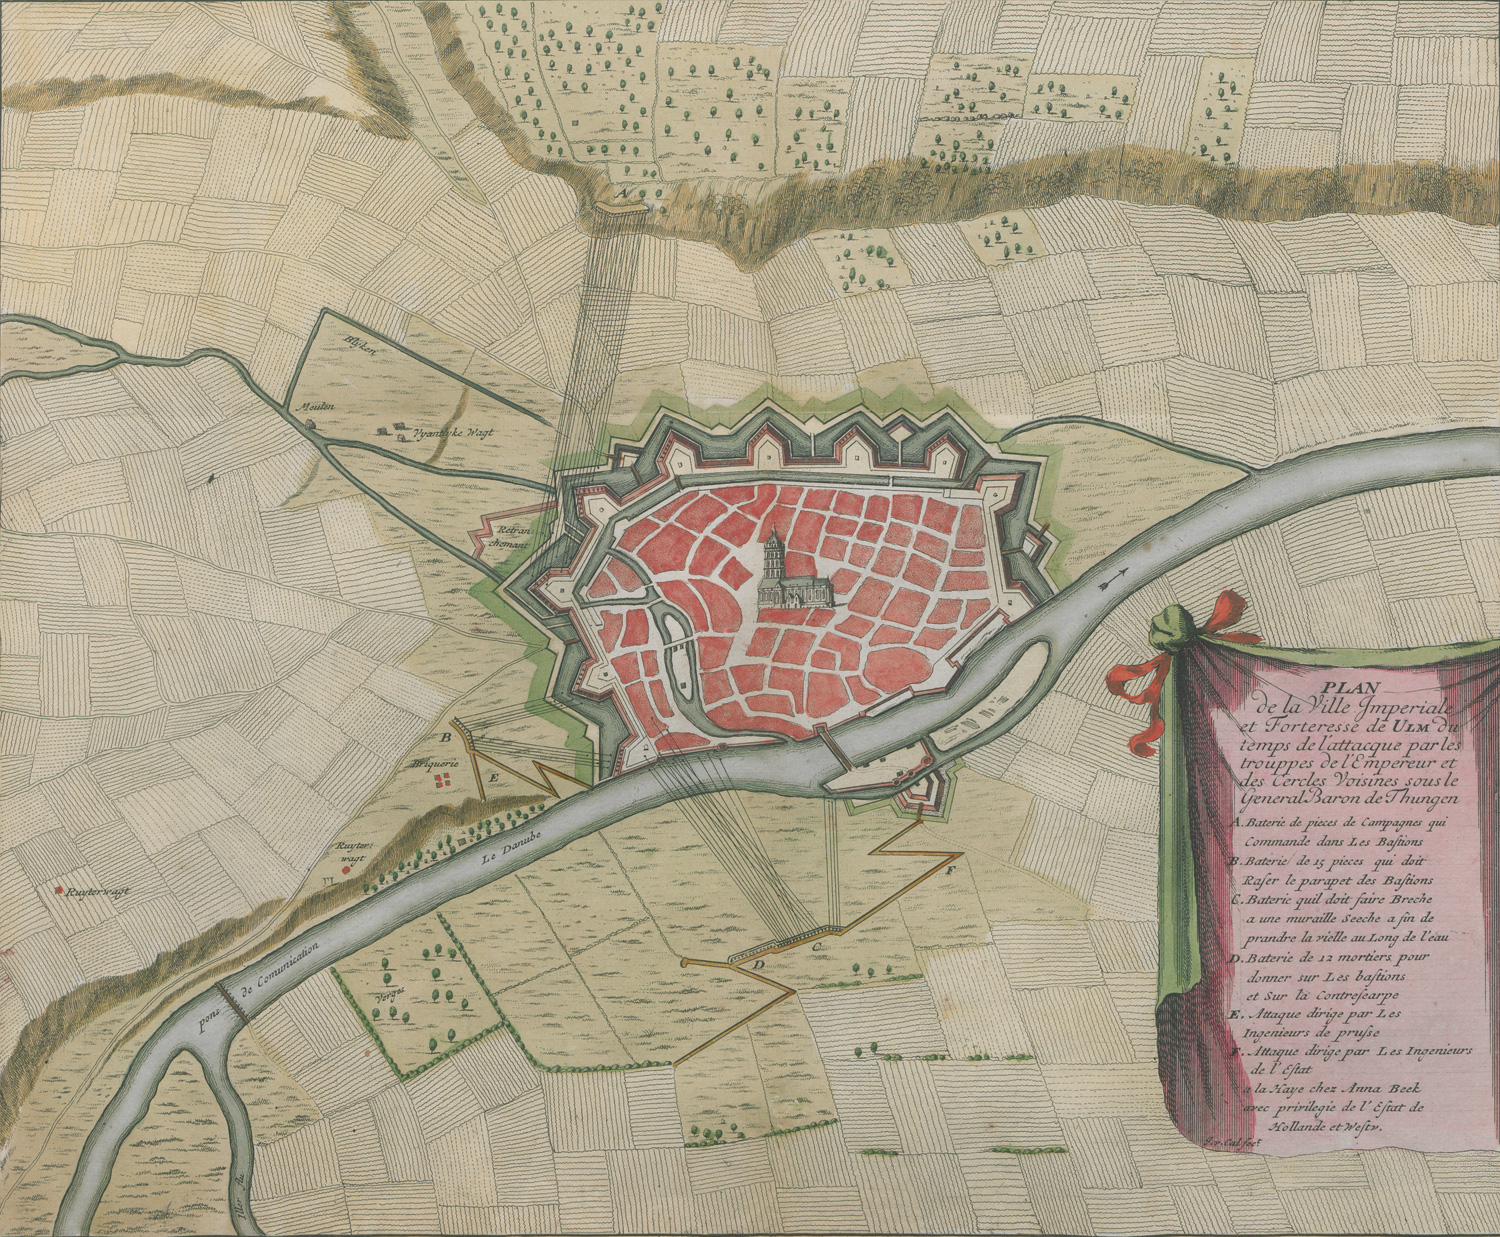 A
Blyken
Meulen
Vyantlyke Wagt
Retran
chemant
B
E
Briquerie
Ruyter:
wagt
Ruyterwagt
Le Danube
F
C
D
Verges
pons de Comunication
Iller Au
PLAN
de la Ville Imperiale
et Forteresse de ULM du
temps de l'attacque par les
trouppes de l'Empereur et
des Cercles Voisines sous le
General Baron de Thungen
A. Baterie de pieces de Campagnes qui
Commande dans Les Bastions
B. Baterie de 15 pieces qui doit
Raser le parapet des Bastions
C. Baterie quil doit faire Breche
a une muraille Seeche a fin de
prandre la vielle au Long de l'eau
D. Baterie de 12 mortiers pour
donner sur Les bastions
et Sur la Contrescarpe
E. Attaque dirige par Les
Ingenieurs de prusse
F. Attaque dirige par Les Ingenieurs
de l'Estat
a la Haye chez Anna Beek
avec privilegie de l'Estat de
Hollande et Westv.